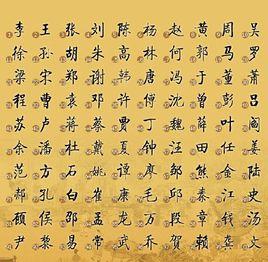 李 王 张 刘 陈 杨 赵 黄 周 吴
徐 孙 胡 朱 高 林 何 郭 马 罗
梁 宋 郑 谢 韩 唐 冯 于 董 萧
程 曹 袁 邓 许 傅 沈 曾 彭 吕
苏 卢 蒋 蔡 贾 丁 魏 薛 叶 阎
余 潘 杜 戴 夏 钟 汪 田 任 姜
范 方 石 姚 谭 廖 邹 熊 金 陆
郝 孔 白 崔 康 毛 邱 秦 江 史
顾 侯 邵 孟 龙 万 段 章 钱 汤
尹 黎 易 常 武 乔 贺 赖 龚 文